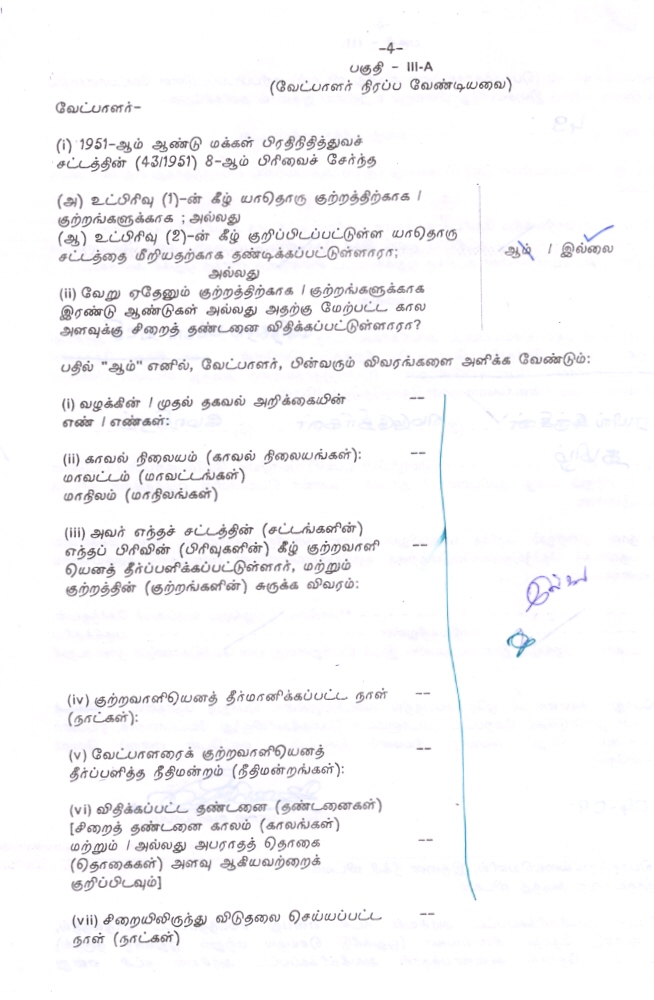 -4-
பகுதி - III-A
(வேட்பாளர் நிரப்ப வேண்டியவை)
வேட்பாளர்-
(i) 1951-ஆம் ஆண்டு மக்கள் பிரதிநிதித்துவச்
சட்டத்தின் (43/1951) 8-ஆம் பிரிவைச் சேர்ந்த
(அ) உட்பிரிவு (1)-ன் கீழ் யாதொரு குற்றத்திற்காக /
குற்றங்களுக்காக ; அல்லது
(ஆ) உட்பிரிவு (2)-ன் கீழ் குறிப்பிடப்பட்டுள்ள யாதொரு
சட்டத்தை மீறியதற்காக தண்டிக்கப்பட்டுள்ளாரா;
ஆம் / இல்லை
அல்லது
(ii) வேறு ஏதேனும் குற்றத்திற்காக / குற்றங்களுக்காக
இரண்டு ஆண்டுகள் அல்லது அதற்கு மேற்பட்ட கால
அளவுக்கு சிறைத் தண்டனை விதிக்கப்பட்டுள்ளாரா?
பதில் "ஆம்" எனில், வேட்பாளர், பின்வரும் விவரங்களை அளிக்க வேண்டும்:
(i) வழக்கின் / முதல் தகவல் அறிக்கையின் --
எண் / எண்கள்:
(ii) காவல் நிலையம் (காவல் நிலையங்கள்): --
மாவட்டம் (மாவட்டங்கள்)
மாநிலம் (மாநிலங்கள்)
(iii) அவர் எந்தச் சட்டத்தின் (சட்டங்களின்) --
எந்தப் பிரிவின் (பிரிவுகளின்) கீழ் குற்றவாளி
யெனத் தீர்ப்பளிக்கப்பட்டுள்ளார், மற்றும்
குற்றத்தின் (குற்றங்களின்) சுருக்க விவரம்:
இல்லை
(iv) குற்றவாளியெனத் தீர்மானிக்கப்பட்ட நாள் --
(நாட்கள்):
(v) வேட்பாளரைக் குற்றவாளியெனத் --
தீர்ப்பளித்த நீதிமன்றம் (நீதிமன்றங்கள்):
(vi) விதிக்கப்பட்ட தண்டனை (தண்டனைகள்)
[சிறைத் தண்டனை காலம் (காலங்கள்)
மற்றும் / அல்லது அபராதத் தொகை --
(தொகைகள்) அளவு ஆகியவற்றைக்
குறிப்பிடவும்]
(vii) சிறையிலிருந்து விடுதலை செய்யப்பட்ட --
நாள் (நாட்கள்)